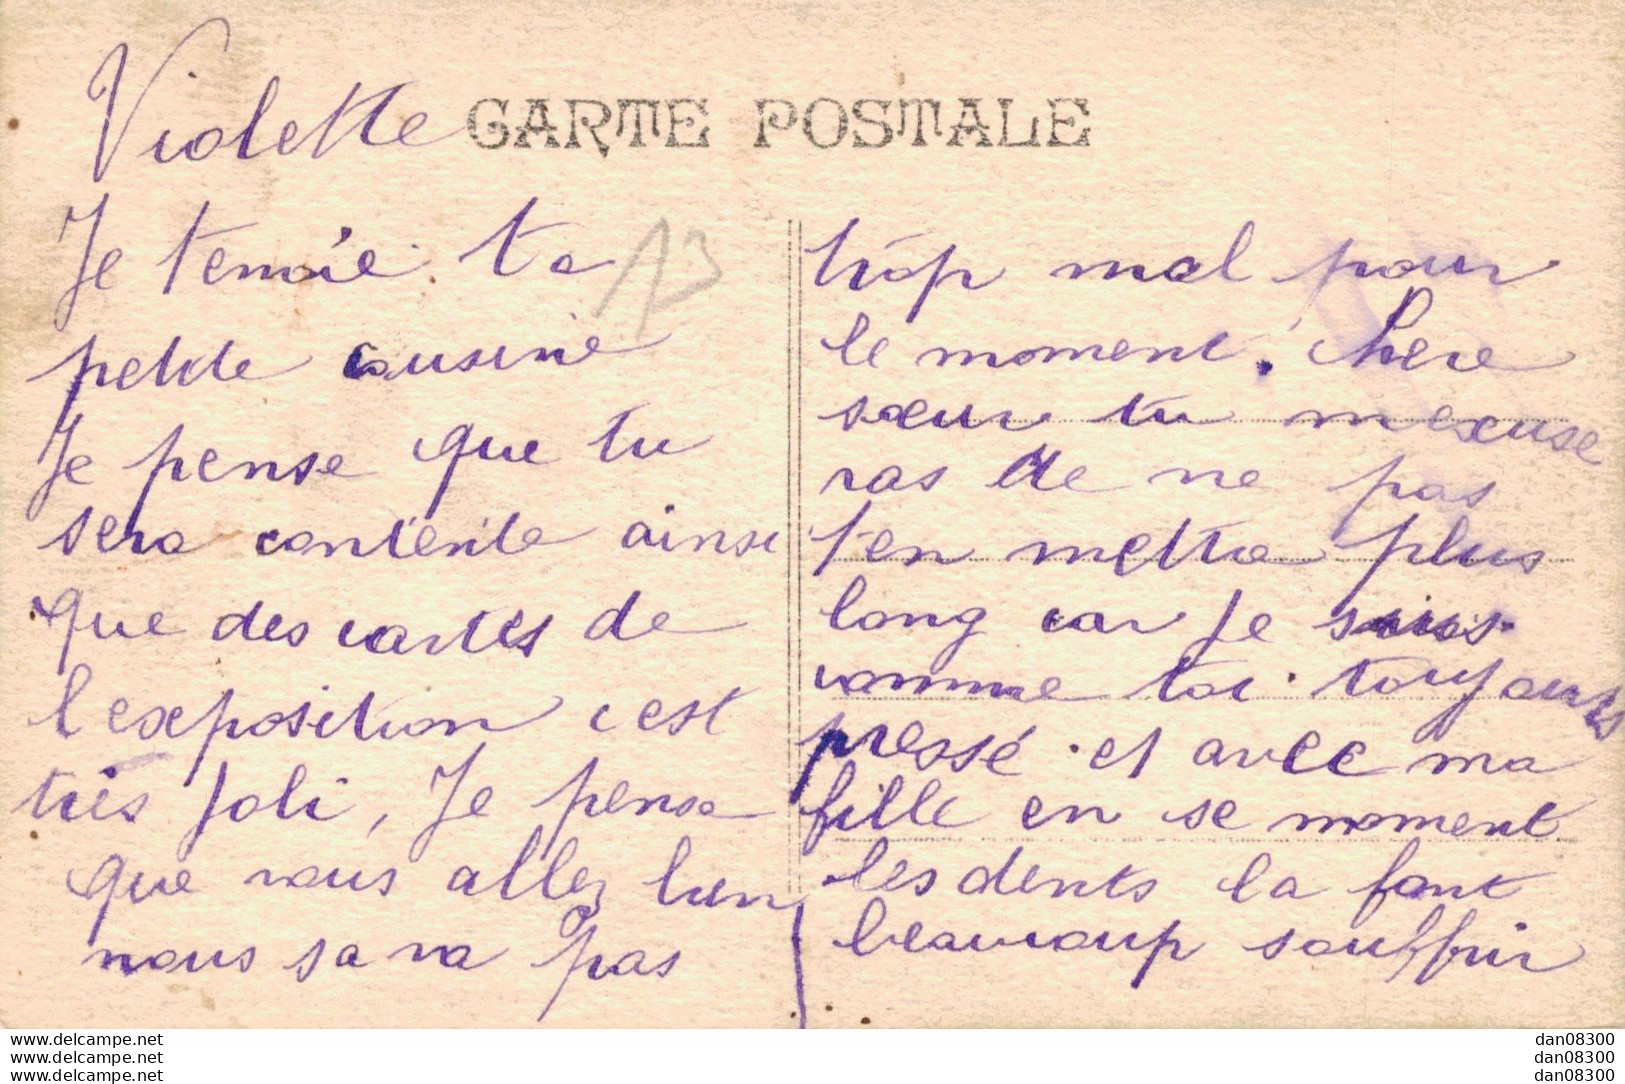 Violette
CARTE POSTALE
13
Je t'envoie ta
petite cousine
Je pense que tu
sera contente ainsi
que des cartes de
l'exposition c'est
très joli, Je pense
que vous allez bien
nous sa va pas
trop mal pour
le moment. Chere
sœur tu m'excuse
ras de ne pas
t'en mettre plus
long car je suis
comme toi toujours
pressé et avec ma
fille en se moment
les dents la font
beaucoup souffrir
www.delcampe.net
www.delcampe.net
www.delcampe.net
dan08300
dan08300
dan08300